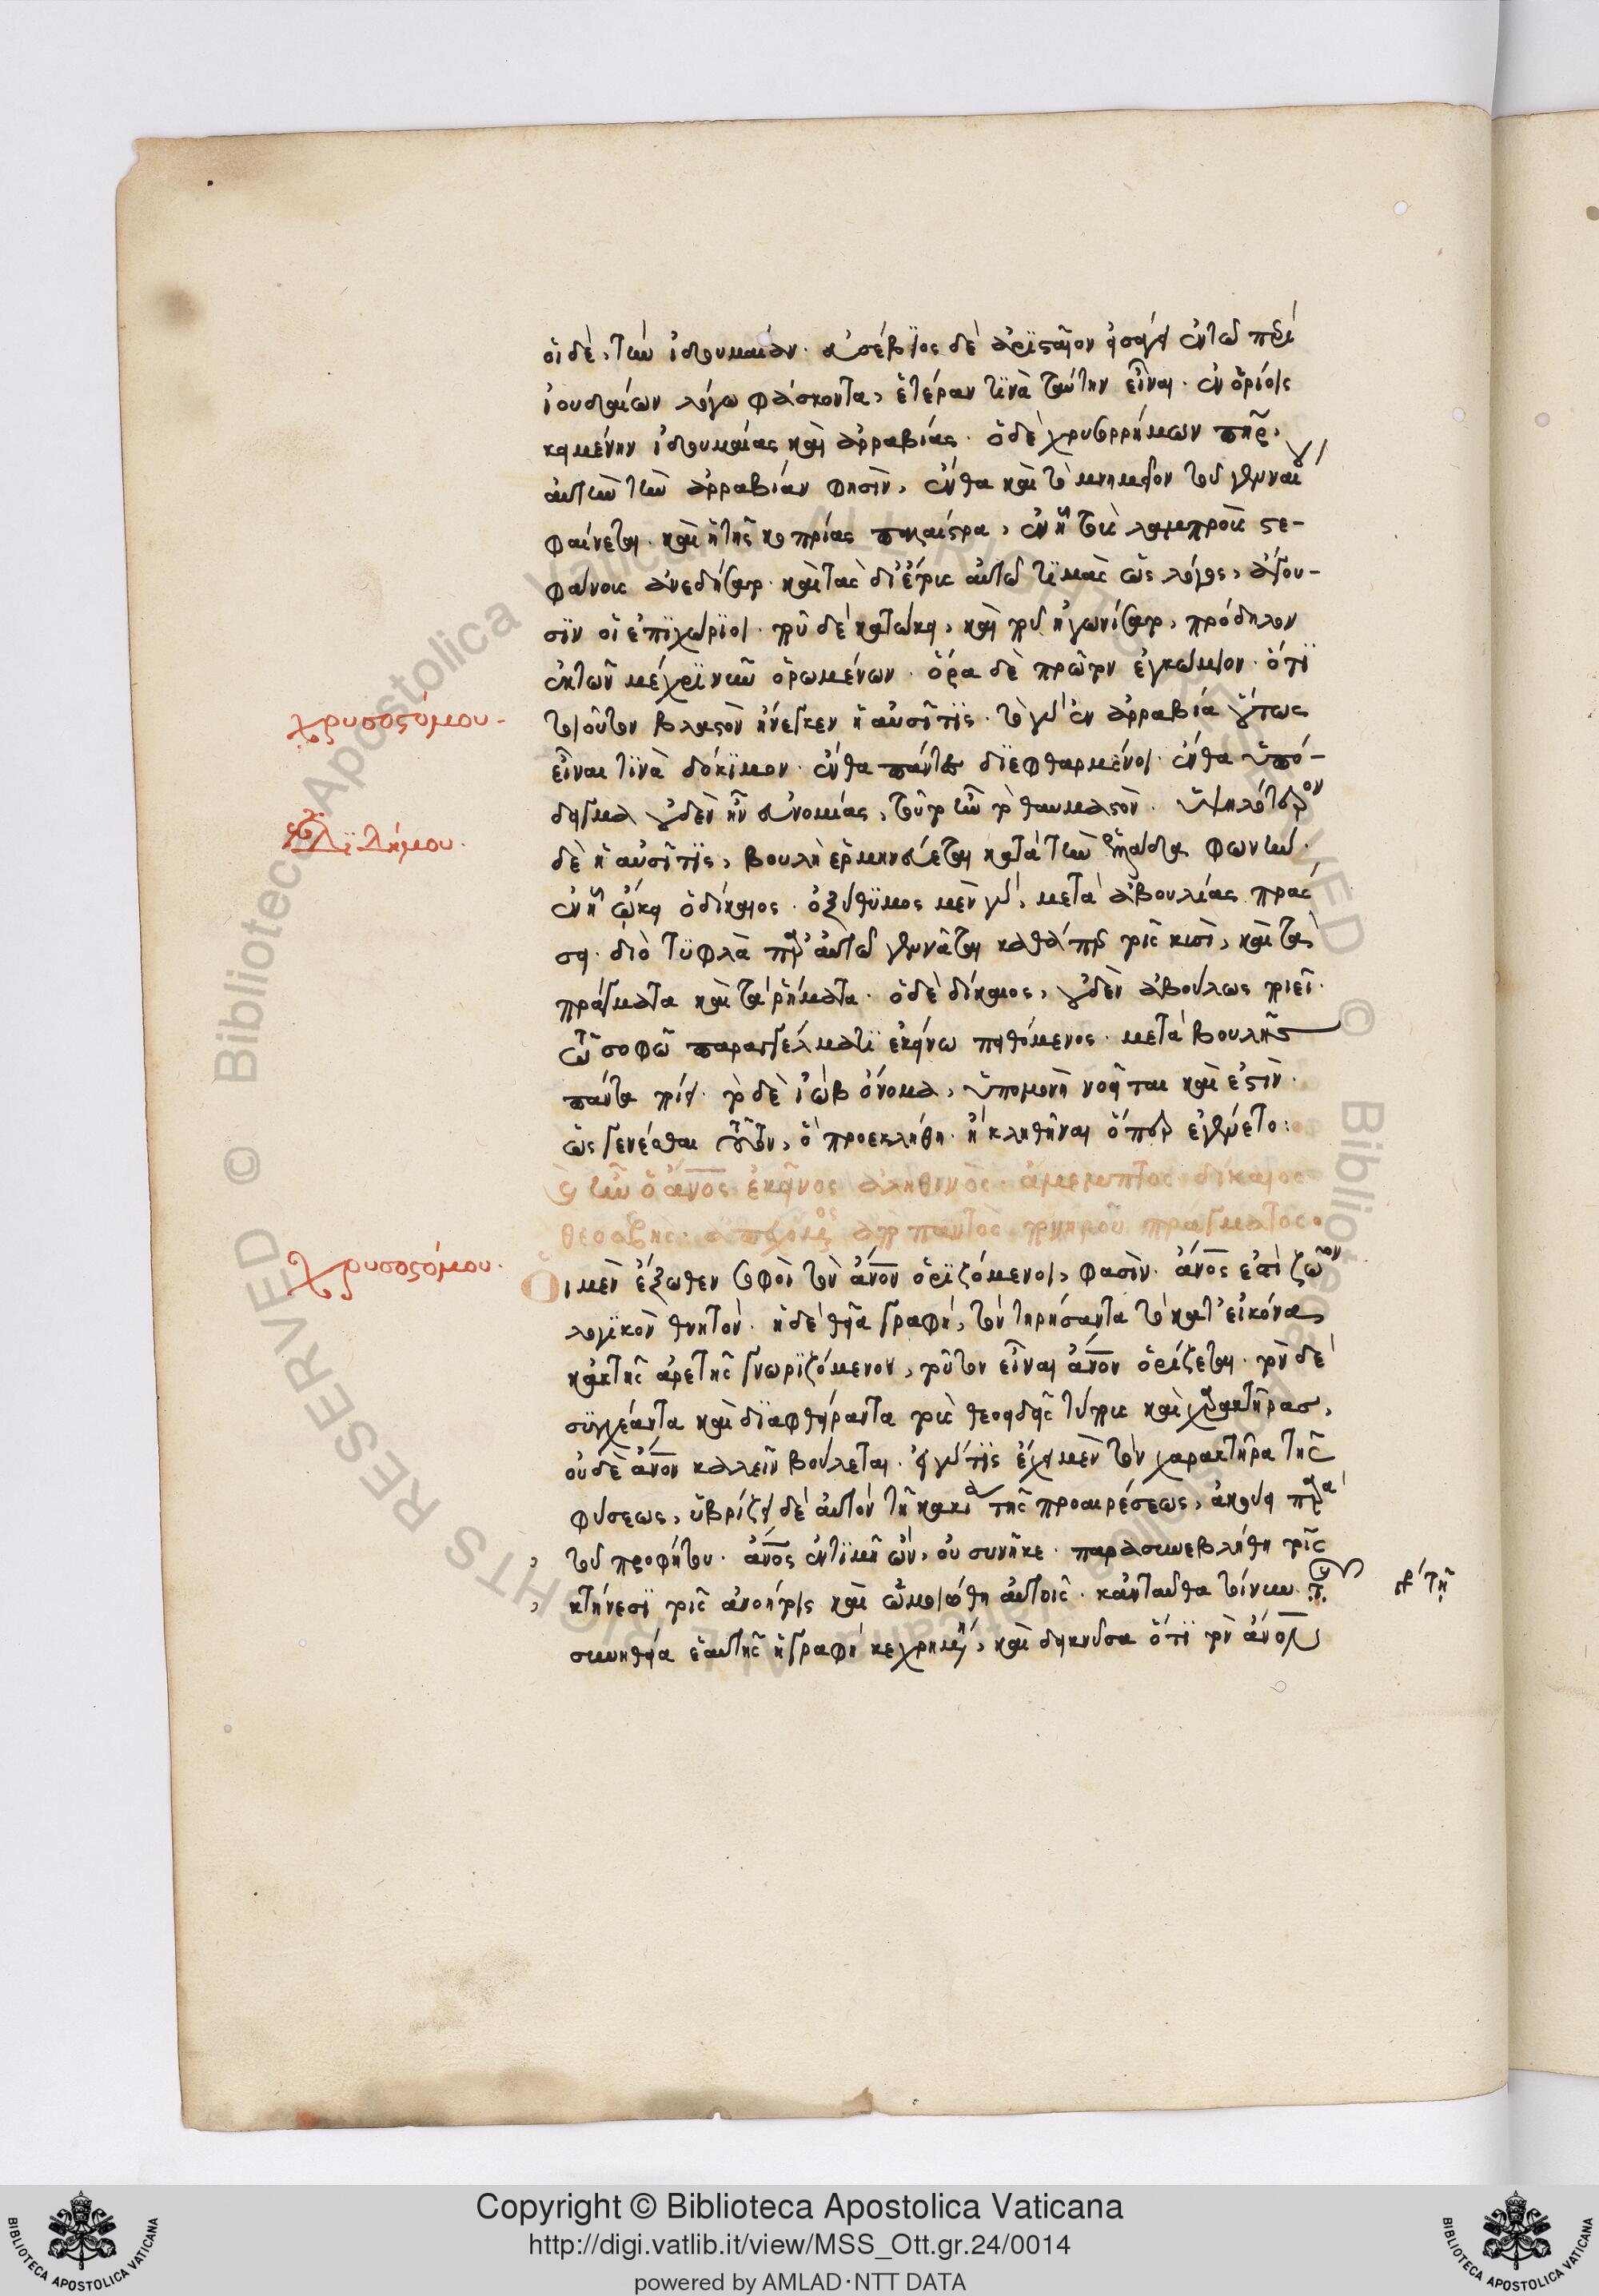 οἱ δὲ, τὴν ἰδουμαίαν. εὐσέβιος δὲ ἀρισταῖον εἰσάγει ἐν τῶ περὶ
ἰουδαίων λόγω φάσκοντα, ἑτέραν τινὰ ταύτην εἶναι. ἐν ὁρίοις
κειμένην ἰδουμαίας καὶ ἀρραβίας. ὁ δὲ χρυσορρήμων πατὴρ,
αὐτὴν τὴν ἀρραβίαν φησὶν, ἔνθα καὶ τὸ μνημεῖον τοῦ γενναίου
φαίνεται. καὶ ἡ τῆς κοπρίας παλαίστρα, ἐν ἧ τοῖς λαμπροῖς στε-
φάνοις ἀνεδήσατο. καὶ τὰς δι' ἔτους αὐτῶ τιμὰς ὡς λόγος, ἄγου-
σιν οἱ ἐπιχώριοι. ποῦ δὲ κατώκει, καὶ ποῦ ἠγωνίσατο, πρόδηλον
ἐκ τῶν μέχρι νῦν ὁρωμένων. ὅρα δὲ πρῶτον ἐγκώμιον. ὅτι
χρυσοστόμου
τοιοῦτον βλαστὸν ἤνεγκεν ἡ αὐσῖτις. τὸ γὰρ ἐν ἀρραβία οὕτως
εἶναι τινὰ δόκιμον. ἔνθα πάντες διεφθαρμένοι. ἔνθα ὑπό-
δειγμα οὐδὲν ἦν εὐνομίας, τοῦτο ἦν τὸ θαυμαστὸν. ὑψηλότερον
Διδύμου.
δὲ ἡ αὐσῖτις, βουλὴ ἑρμηνεύεται κατὰ τὴν ἑλλάδα φωνήν.
ἐν ἧ ὤκει ὁ δίκαιος. ὀξύθυμος μὲν γὰρ, μετὰ ἀβουλίας πράσ
σει. διὸ τυφλὰ παρ' αὐτῶ γεννᾶται καθάπερ τοῖς κυσὶ, καὶ τὰ
πράγματα καὶ τὰ ῥήματα. ὁ δὲ δίκαιος, οὐδὲν ἀβούλως ποιεῖ.
τῶ σοφῶ παραγγέλματι ἐκείνω πειθόμενος. μετὰ βουλῆς
πάντα ποίει. τὸ δὲ ἰὼβ ὄνομα, ὑπομονὴ νοεῖται καὶ ἔστιν.
ὡς γενέσθαι αὐτὸν, ὃ προεκλήθη. ἢ κληθῆναι ὅπερ ἐγένετο:
Καὶ ἦν ὁ ἄνος ἐκεῖνος ἀληθινὸς. ἄμεμπτος. δίκαιος.
θεοσεβὴς. ἀπεχόμενος ἀπὸ παντὸς πονηροῦ πράγματος.
χρυσοστόμου.
Οἱ μὲν ἔξωθεν σοφοὶ τὸν ἄνον ὁριζόμενοι, φασὶν. ἄνος ἐστὶ ζῶον
λογικὸν θνητόν. ἡ δὲ θεία γραφὴ, τὸν τηρήσαντα τὸ κατ' εἰκόνα,
κἀκ τῆς ἀρετῆς γνωριζόμενον, τοῦτον εἶναι ἄνον ὁρίζεται. τὸν δὲ
συγχέαντα καὶ διαφθείραντα τοὺς θεοειδεῖς τύπους καὶ χαρακτῆρας,
οὐδὲ ἄνον καλεῖν βούλεται. εἰ γάρ τις ἔχει μὲν τὸν χαρακτῆρα τῆς
φύσεως, ὑβρίζει δὲ αὐτὸν τῆ κακία τῆς προαιρέσεως, ἀκούει παρὰ
τοῦ προφήτου. ἄνος ἐν τιμῆ ὢν, οὐ συνῆκε. παρασυνεβλήθη τοῖς
κτήνεσι τοῖς ἀνοήτοις καὶ ὡμοιώθη αὐτοῖς. κἀνταῦθα τοίνυν τῆ
συνηθεία ἑαυτῆς ἡ γραφὴ κεχρημένη, καὶ δεικνῦσα ὅτι τὸν ἄνον